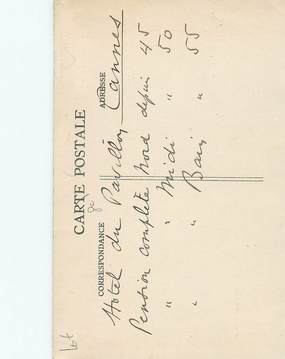 CARTE POSTALE
CORRESPONDANCE
ADRESSE
Hotel du Pavillon Cannes
Pension complète Nord depuis 45
" " Midi " 50
" " Bain " 55